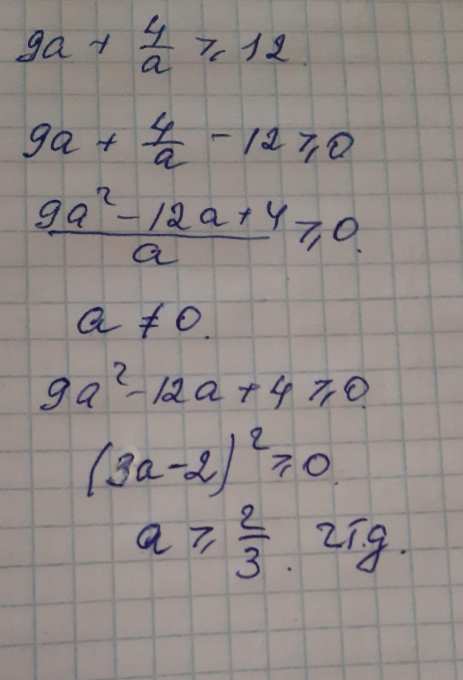 9a + 4/a ⩾ 12.
9a + 4/a - 12 ⩾ 0
(9a² - 12a + 4)/a ⩾ 0.
a ≠ 0.
9a² - 12a + 4 ⩾ 0
(3a - 2)² ⩾ 0.
a ⩾ 2/3. чтд.